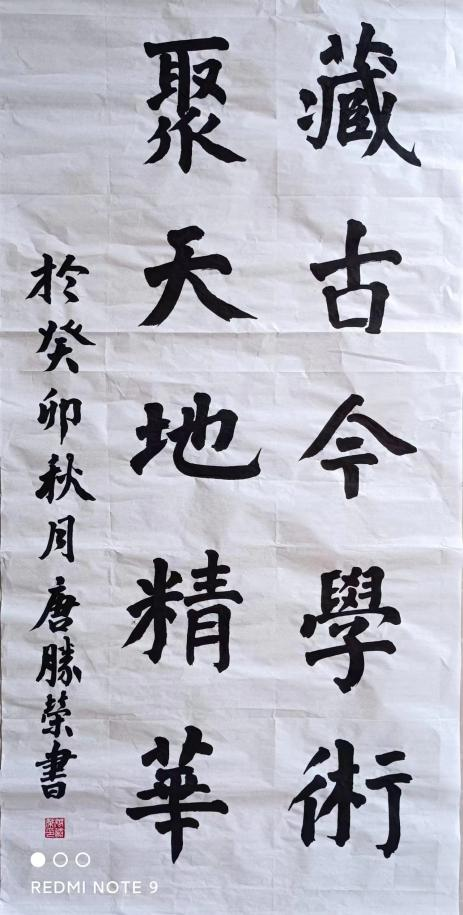 藏古今學術
聚天地精華
於癸卯秋月唐勝榮書
REDMI NOTE 9